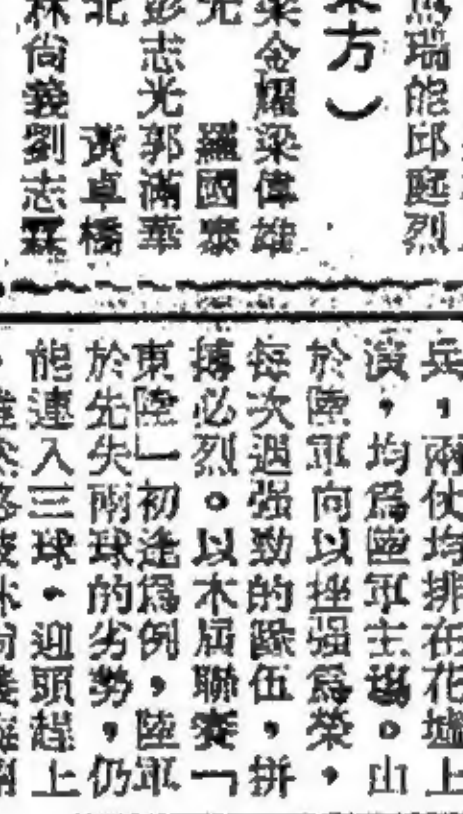 瑞能邱庭烈
東方）
梁金耀梁偉雄
光　羅國泰
彭志光郭滿華
北　黃卓橋
林尚義劉志霖
兵，兩伙均排在花墟上
演，均爲陸軍主場。山
於陸軍向以挫強爲榮，
每次遇强勁的隊伍，拼
搏必烈。以本屆聯賽「
東陸」初逢爲例，陸軍
於先失兩球的劣勢，仍
能連入三球，迎頭趕上